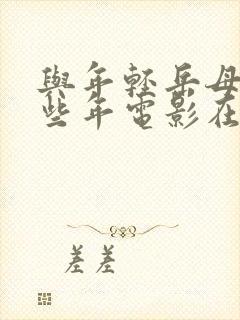 與年輕岳母
些年電影在
差差